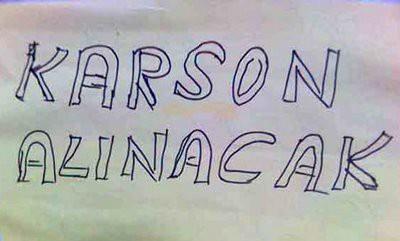 KARSON
ALINACAK